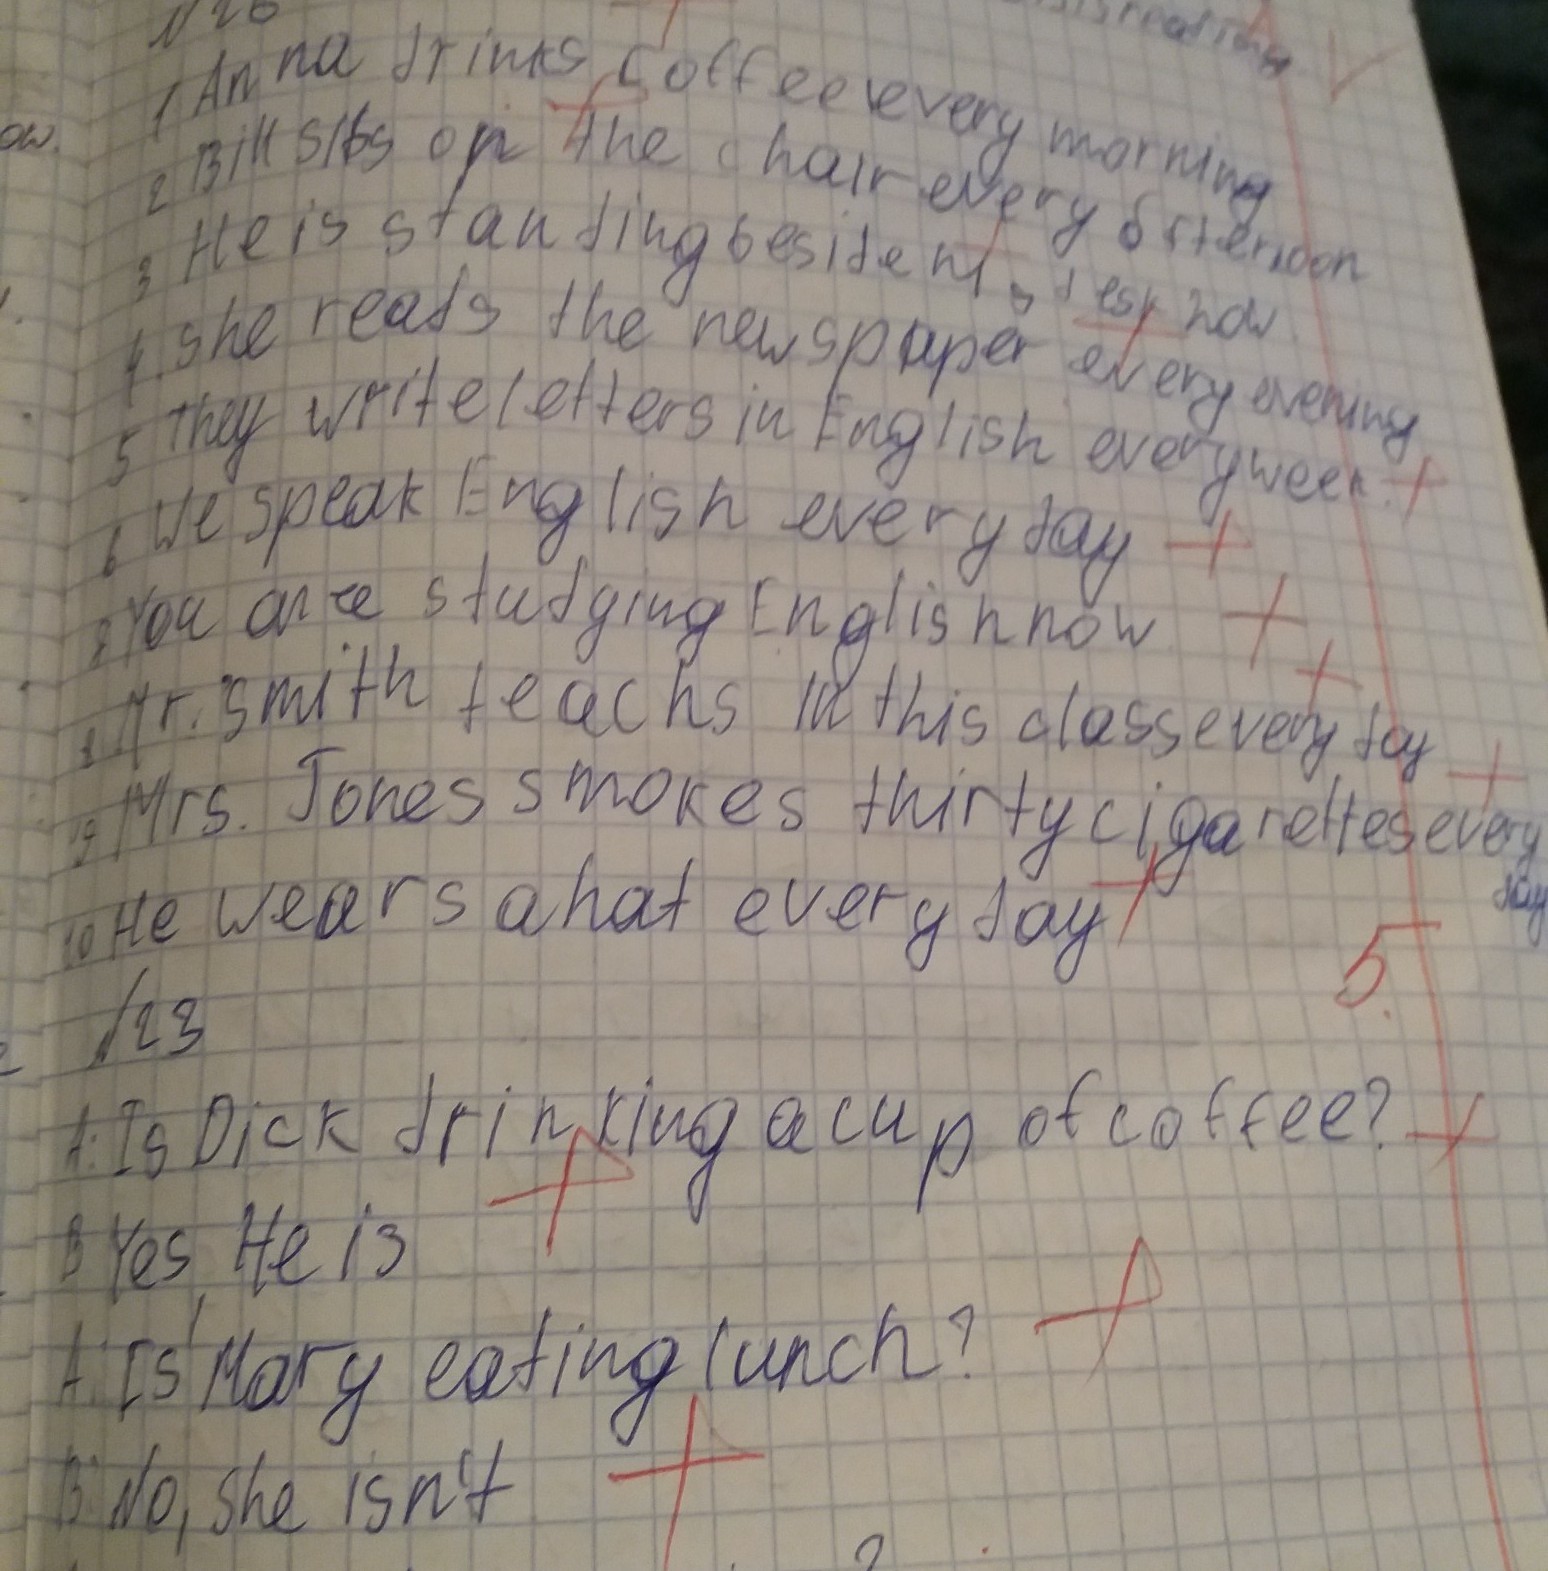 №26
1 Anna drinks coffee every morning
2 Bill sits on the chair every afternoon
3 He is standing beside his desk now.
4. she reads the newspaper every evening
5 They write letters in English every week.
6 We speak English every day
You are studying English now.
8 Mr. Smith teachs in this class every day
9 Mrs. Jones smokes thirty cigarettes every
day
10 He wears a hat every day
5.
№23
A: Is Dick drinking a cup of coffee?
B Yes, He is
A: Is Mary eating lunch?
B: No, she isn't